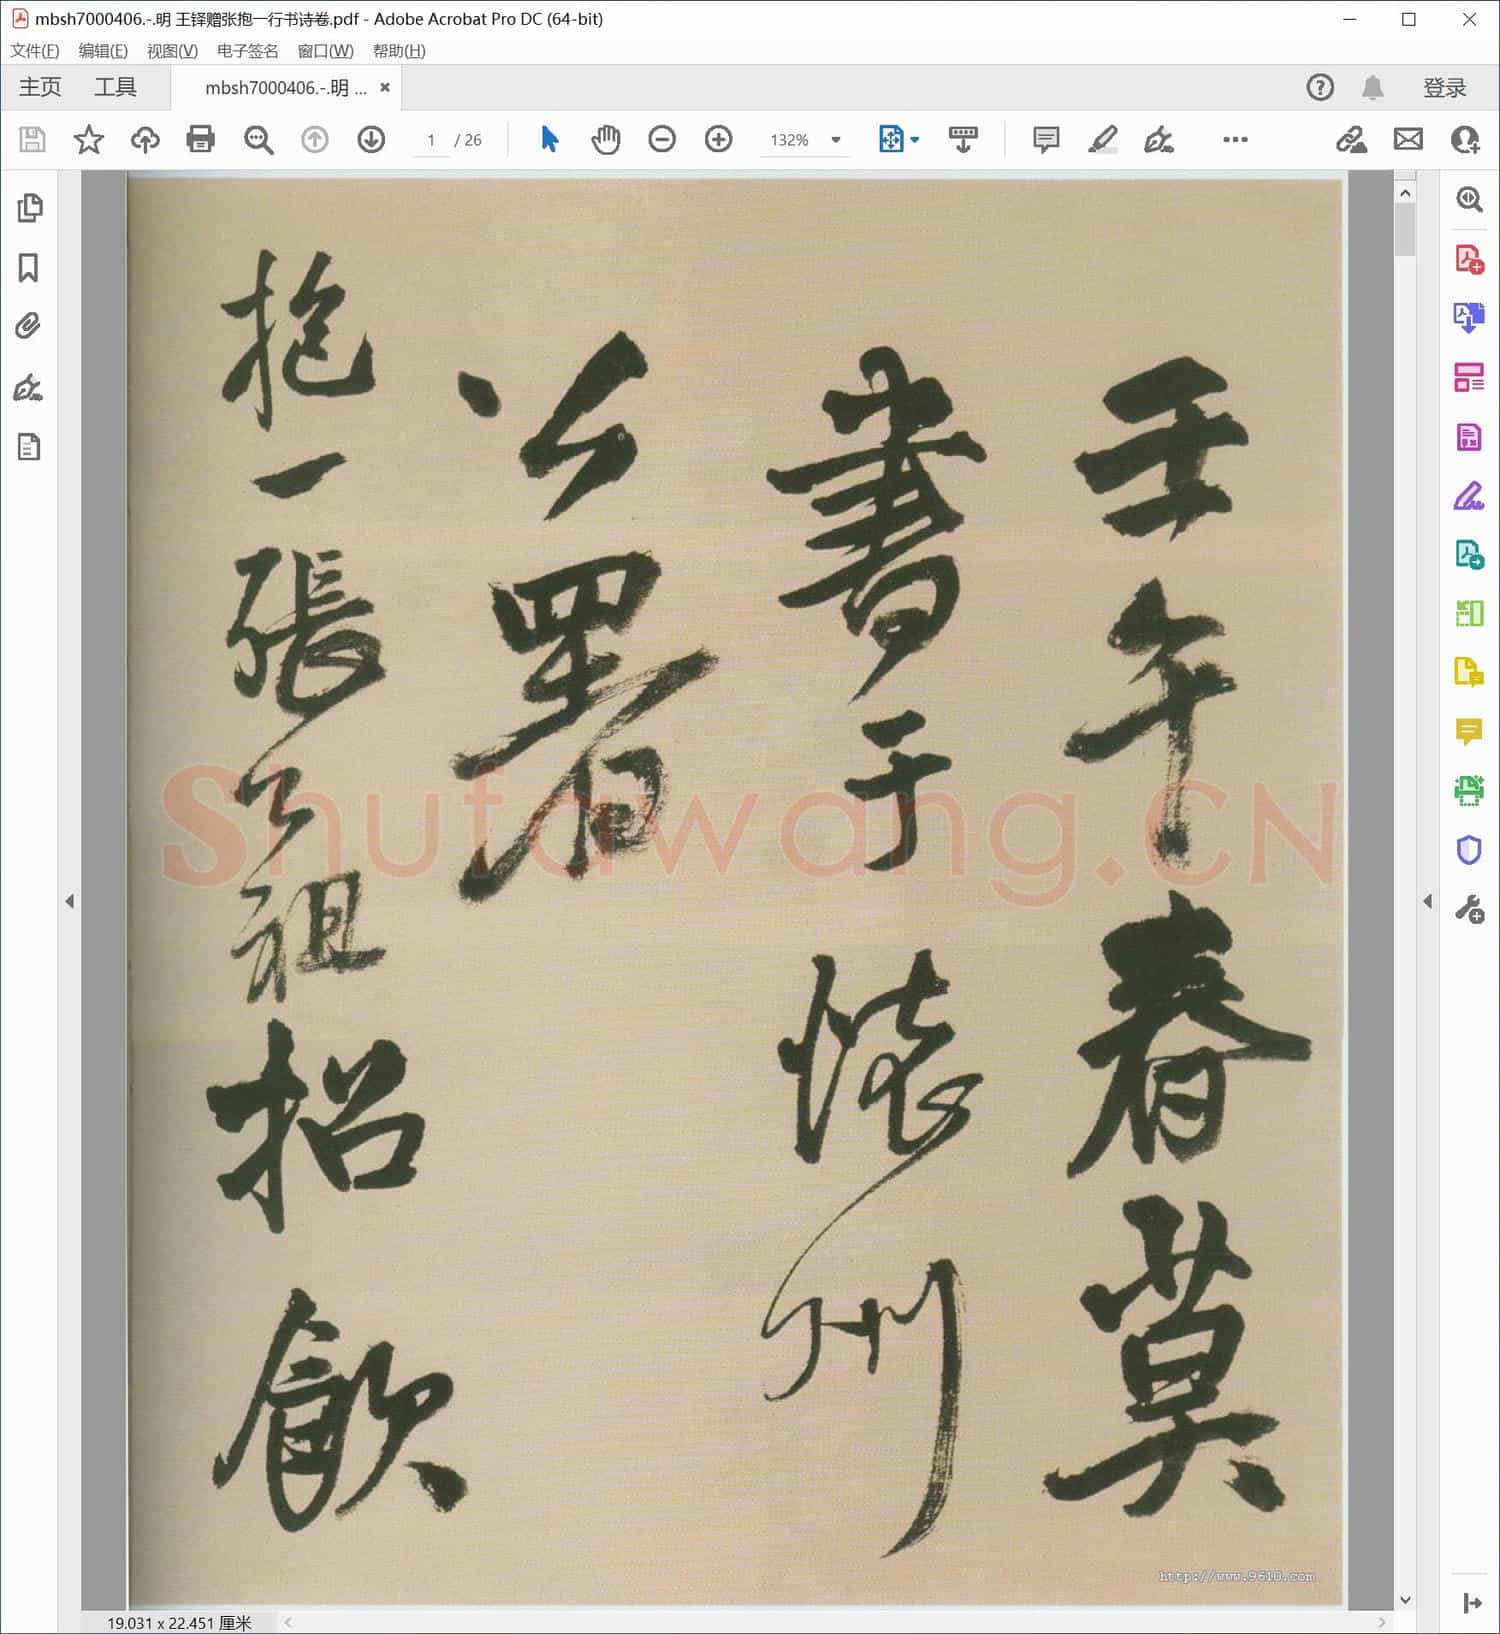 mbsh7000406.-.明 王铎赠张抱一行书诗卷.pdf - Adobe Acrobat Pro DC (64-bit)
文件(F) 编辑(E) 视图(V) 电子签名 窗口(W) 帮助(H)
主页 工具 mbsh7000406.-.明 ... × 登录
1 / 26 132%
壬午春莫
書于懐州
公署
抱一張公祖招
飲
Shufawang.CN
http://www.9610.com
19.031 x 22.451 厘米